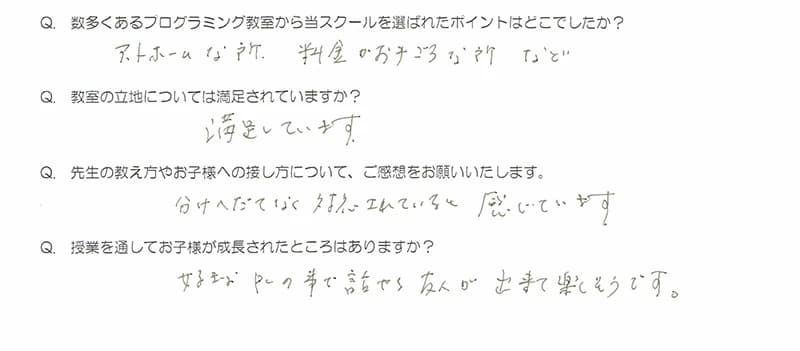 Q. 数多くあるプログラミング教室から当スクールを選ばれたポイントはどこでしたか？
アットホームな所. 料金がお手ごろな所 など
Q. 教室の立地については満足されていますか？
満足しています
Q. 先生の教え方やお子様への接し方について、ご感想をお願いいたします。
分けへだてなく 対応されていると 感じています
Q. 授業を通してお子様が成長されたところはありますか？
好きな PCの事で 話せる 友人が 出来て 楽しそうです。